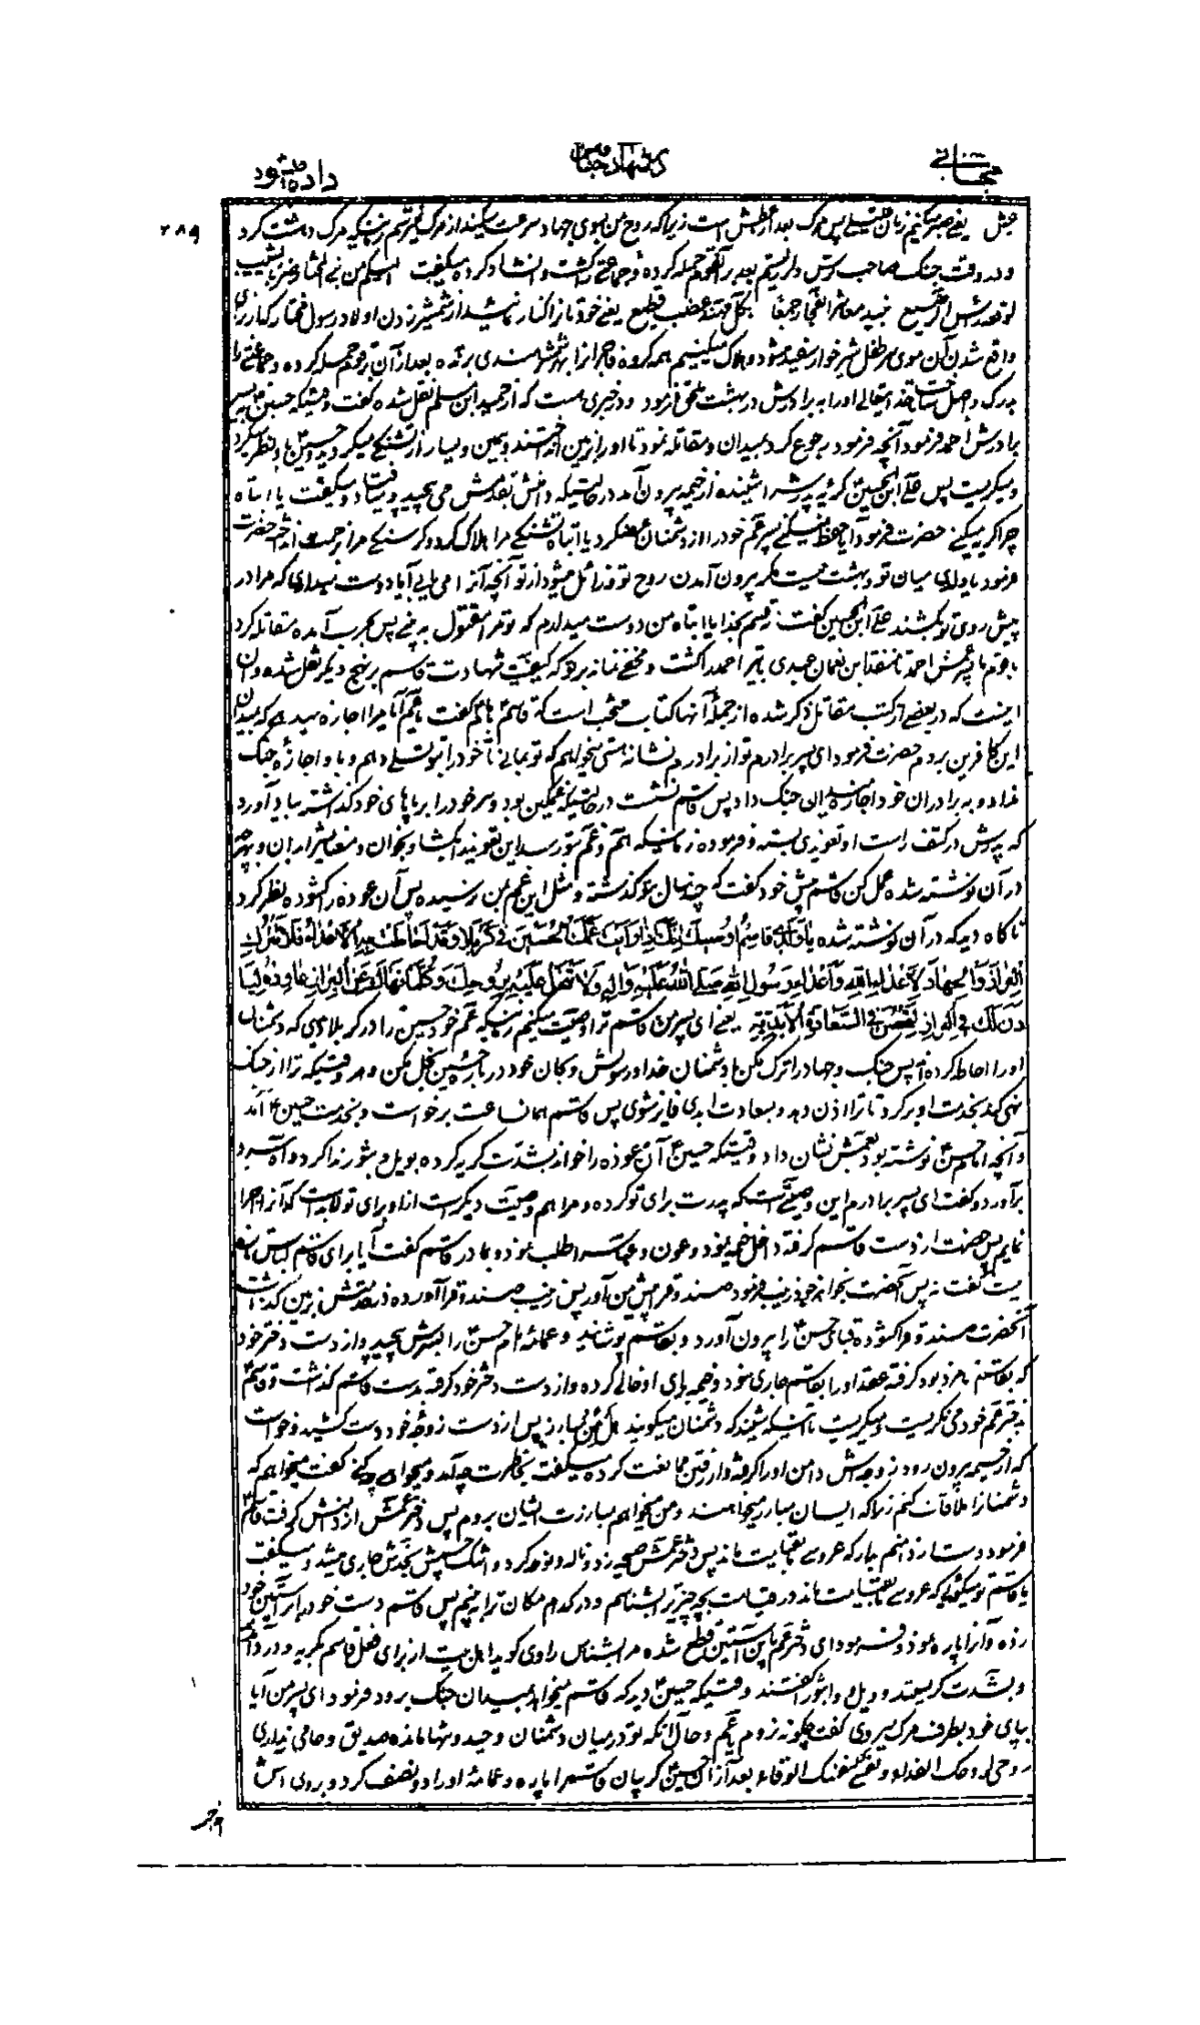 داده شود
۲۸۹
یعنی صبر میکنم زیرا که پس مرگ بعد از عطش است زیرا که روح من بسوی جهاد سرعت میکند از مرگ نمیترسم زمانیکه مرگ دهشت کرد
و در وقت جنگ صاحب ترس و لرز نیستم بعد بر آنقوم حمله کرده و جماعتی را کشت و انشاد کرده میگفت
واقع شدن آن موی سر طفل شیرخوار سفید میشود و هلاک میکنیم همه گروه فاجر را بشمشیر هندی برنده بعد از آن بر قوم حمله کرده و جماعتی را
بدرک واصل ساخت خدایتعالی او را به برادرش در بهشت ملحق فرمود و در خبری هست که از حمید ابن مسلم نقل شده گفت وقتیکه حسین پسر
برادرش احمد فرمود آنچه فرمود رجوع کرد بمیدان و مقاتله نمود تا او را بزمین انداختند و یمین و یسار از تشنگی میکردید و حسین باو نظر میکرد
و میگریست پس علی ابن الحسین گریه پدرش را شنیده از خیمه بیرون آمد در حالتیکه دامنش بقدمش می پیچید و میافتاد و میگفت یا ابتاه
چرا گریه میکنی حضرت فرمود آیا حفظ نمیکنی پسر عم خود را از دشمنان عرضکرد یا ابتاه تشنگی مرا هلاک کرد و گرسنگی مرا بزحمت انداخته حضرت
فرمود یا ولدی میان تو و بهشت نیست مگر بیرون آمدن روح تو و زائل میشود از تو آنچه آنرا می یابی آیا دوست میداری که مرا در
پیش روی تو بکشند علی ابن الحسین گفت نه قسم بخدا یا ابتاه من دوست میدارم که تو مرا مقتول به بینی پس بحرب آمده مقاتله کرد
با قوم با پسر عمش احمد تا منقذ ابن نعمان عبدی باتیر احمد را کشت و مخفی نماند بر تو که کیفیت شهادت قاسم بر نهج دیگر نقل شده و آن
اینست که در بعضی از کتب مقاتل ذکر شده از جمله آنها کتاب منتخب است که قاسم بامام گفت یا عم آیا مرا اجازه میدهی که بمیدان
این کافرین بروم حضرت فرمود ای پسر برادرم تو از برادرم نشانه هستی میخواهم که تو بمانی تا خود را بتو تسلی دهم و باو اجازه جنگ
نداد و به برادران خود اجازه میدان جنگ داد پس قاسم نشست در حالتیکه غمگین بود و سر خود را بر پاهای خود گذاشته بیاد آورد
که پدرش در کتف راست او تعویذی بسته و فرموده زمانیکه الم و غم بتو رسد این تعویذ را بگشا و بخوان و معنایش را بدان و بهر چه
در آن نوشته شده عمل کن قاسم پیش خود گفت که چند سال بر تو گذشته و مثل این غم بمن نرسیده پس آن عوذه را گشوده نظر کرد
ناگاه دید که در آن نوشته شده یا ولدی قاسم اوصیک انک اذا رأیت عمک الحسین فی کربلا و قد احاطت به الاعداء فلا تترک
البراز و الجهاد لاعداء الله و اعداء رسول الله صلی الله علیه و آله و لا تبخل علیه بروحک و کلما نهاک عن البراز عاوده لیا
ذن لک فی البراز لتحظی فی السعادة الابدیة یعنی ای پسر من قاسم ترا وصیت میکنم زمانیکه عم خود حسین را در کربلا دیدی که دشمنان
او را احاطه کرده اند پس جنگ و جهاد را ترک مکن با دشمنان خدا و رسولش و بجان خود در باره حسین بخل مکن و هر وقتیکه ترا از جنگ
نهی کند بخدمت او برگرد تا ترا اذن دهد و بسعادت ابدی فایز شوی پس قاسم همان ساعت برخواست و بخدمت حسین ع آمد
و آنچه امام حسن نوشته بود بعمش نشان داد وقتیکه حسین ع آن عوذه را خواند بشدت گریه کرده بویل و ثبور ندا کرد و آه سرد
برآورد و گفت ای پسر برادرم این وصیتی است که پدرت برای تو کرده و مرا هم وصیت دیگر است از او برای تو لابد است که آنرا اجرا
نمایم پس حضرت از دست قاسم گرفته داخل خیمه نمود و عون و عباس را طلب نمود و بمادر قاسم گفت آیا برای قاسم لباس تازه
نیست گفت نه پس آنحضرت بخواهر خود زینب فرمود صندوق را پیش من آور پس زینب صندوق را آورده نزدش بزمین گذاشت
آنحضرت صندوق را گشوده قبای حسن را بیرون آورد و بقاسم پوشانید و عمامه امام حسن را بسرش پیچید و از دست دختر خود
که بقاسم نامزد بود گرفته عقد او را بقاسم جاری نمود و خیمه برای او خالی کرده و از دست دختر خود گرفته بدست قاسم گذاشت و قاسم
بدختر عم خود می نگریست و میگریست تا اینکه شنید که دشمنان میگویند هل من مبارز پس از دست زوجه خود دست کشید و خواست
که از خیمه بیرون رود زوجه اش دامن او را گرفته و از رفتن ممانعت کرده میگفت بخاطرت چه آمد و میخواهی چه کنی گفت میخواهم که
دشمنانرا ملاقات کنم زیرا که ایشان مبارز میخواهند و من میخواهم بمبارزت ایشان بروم پس دختر عمش از دامنش گرفت قاسم
فرمود دست از دامنم بدار که عروسی ما بقیامت ماند پس دختر عمش صیحه زد و ناله و نوحه کرد و اشک چشمش بخدش جاری میشد و میگفت
یا قاسم تو میگوئی که عروسی ما بقیامت ماند در قیامت بچه چیز ترا بشناسم و در کدام مکان ترا به بینم پس قاسم دست خود را بر آستین خود
زده و آنرا پاره نمود و فرمود ای دختر عم باین آستین قطع شده مرا بشناس راوی گوید اهل بیت از برای فعل قاسم بگریه در آمده
و بشدت گریستند و ویل و ثبور گفتند وقتیکه حسین ع دید که قاسم میخواهد بمیدان جنگ برود فرمود ای پسر من آیا
بپای خود بطرف مرگ میروی گفت چگونه نروم یا عم و حال آنکه تو در میان دشمنان وحید و تنها مانده صدیق و حامی نداری
روحی لروحک الفداء و نفسی لنفسک الوقاء بعد از آن حسین گریبان قاسم را پاره و عمامه او را دو نصف کرد و بروی اش